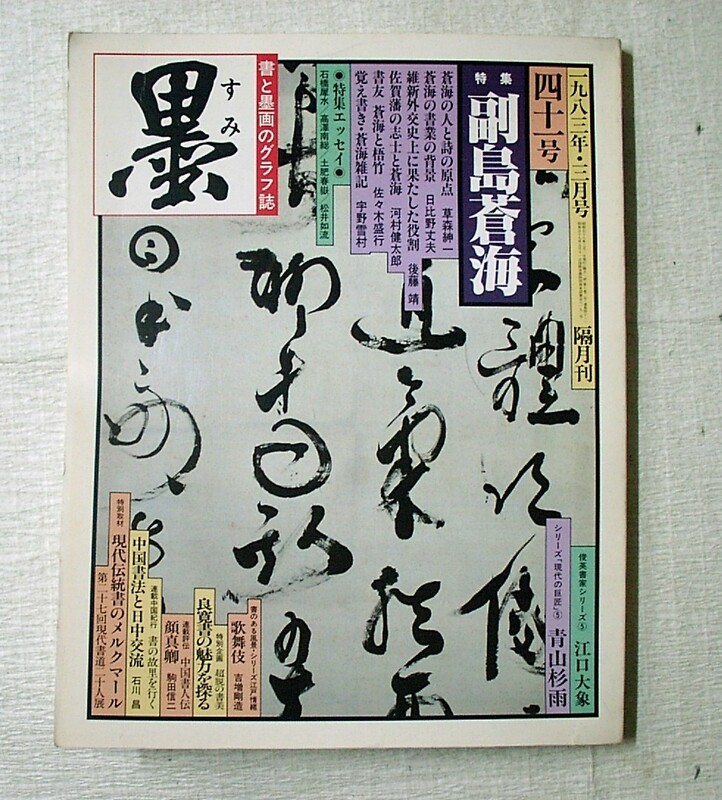 一九八三年・三月号
隔月刊
四十一号
特集
副島蒼海
蒼海の人と詩の原点 草森紳一
蒼海の書業の背景 日比野丈夫
維新外交史上に果たした役割 後藤 靖
佐賀藩の志士と蒼海 河村健太郎
書友 蒼海と梧竹 佐々木盛行
覚え書き・蒼海雑記 宇野雪村
●特集エッセイ●
石橋犀水/高澤南総/土肥春嶽/松井如流
書と墨画のグラフ誌
すみ
墨
俊英書家シリーズ⑤
江口大象
シリーズ「現代の巨匠」⑤
青山杉雨
書のある風景・シリーズ江戸情緒
歌舞伎 吉増剛造
特別企画 超脱の書美
良寛書の魅力を探る
連載評伝 中国書人伝
顔真卿 駒田信二
連載中国紀行 書の故里を行く
中国書法と日中交流 石川 昌
特別取材
現代伝統書のメルクマール
第二十七回現代書道二十人展